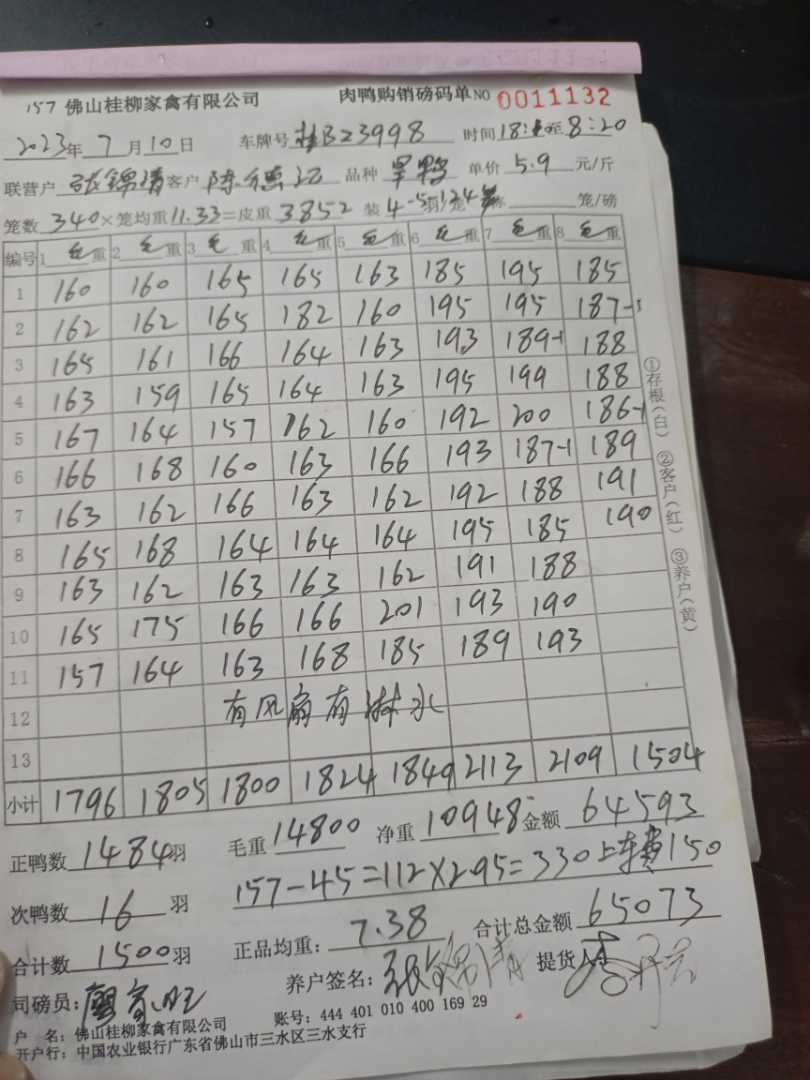 157 佛山桂柳家禽有限公司 肉鸭购销磅码单 NO 0011132
2023年7月10日 车牌号 桂BZ3998 时间 18: 至8:20
联营户 张锦清 客户 陈德 品种 旱鸭 单价 5.9 元/斤
笼数 340×笼均重11.33=皮重 3852 装 4-5 笼/磅
编号 1 毛重 2 毛重 3 毛重 4 毛重 5 毛重 6 毛重 7 毛重 8 毛重
1 160 160 165 165 163 185 195 185
2 162 162 165 182 160 195 195 187-1
3 165 161 166 164 163 193 189-1 188
4 163 159 165 164 163 195 199 188
5 167 164 157 162 160 192 200 186-1
6 166 168 160 163 166 193 187-1 189
7 163 162 166 163 162 192 188 191
8 165 168 164 164 164 195 185 190
9 163 162 163 163 162 191 188
10 165 175 166 166 201 193 190
11 157 164 163 168 185 189 193
12 有风扇有淋水
13
小计 1796 1805 1800 1824 1849 2113 2109 1504
正鸭数 1484羽 毛重 14800 净重 10948 金额 64593
157-45=112×2.95=330 上车费150
次鸭数 16 羽
合计数 1500羽 正品均重: 7.38 合计总金额 65073
司磅员: 养户签名: 张锦清 提货人:
户 名: 佛山桂柳家禽有限公司 账号: 444 401 010 400 169 29
开户行: 中国农业银行广东省佛山市三水区三水支行
①存根(白) ②客户(红) ③养户(黄)